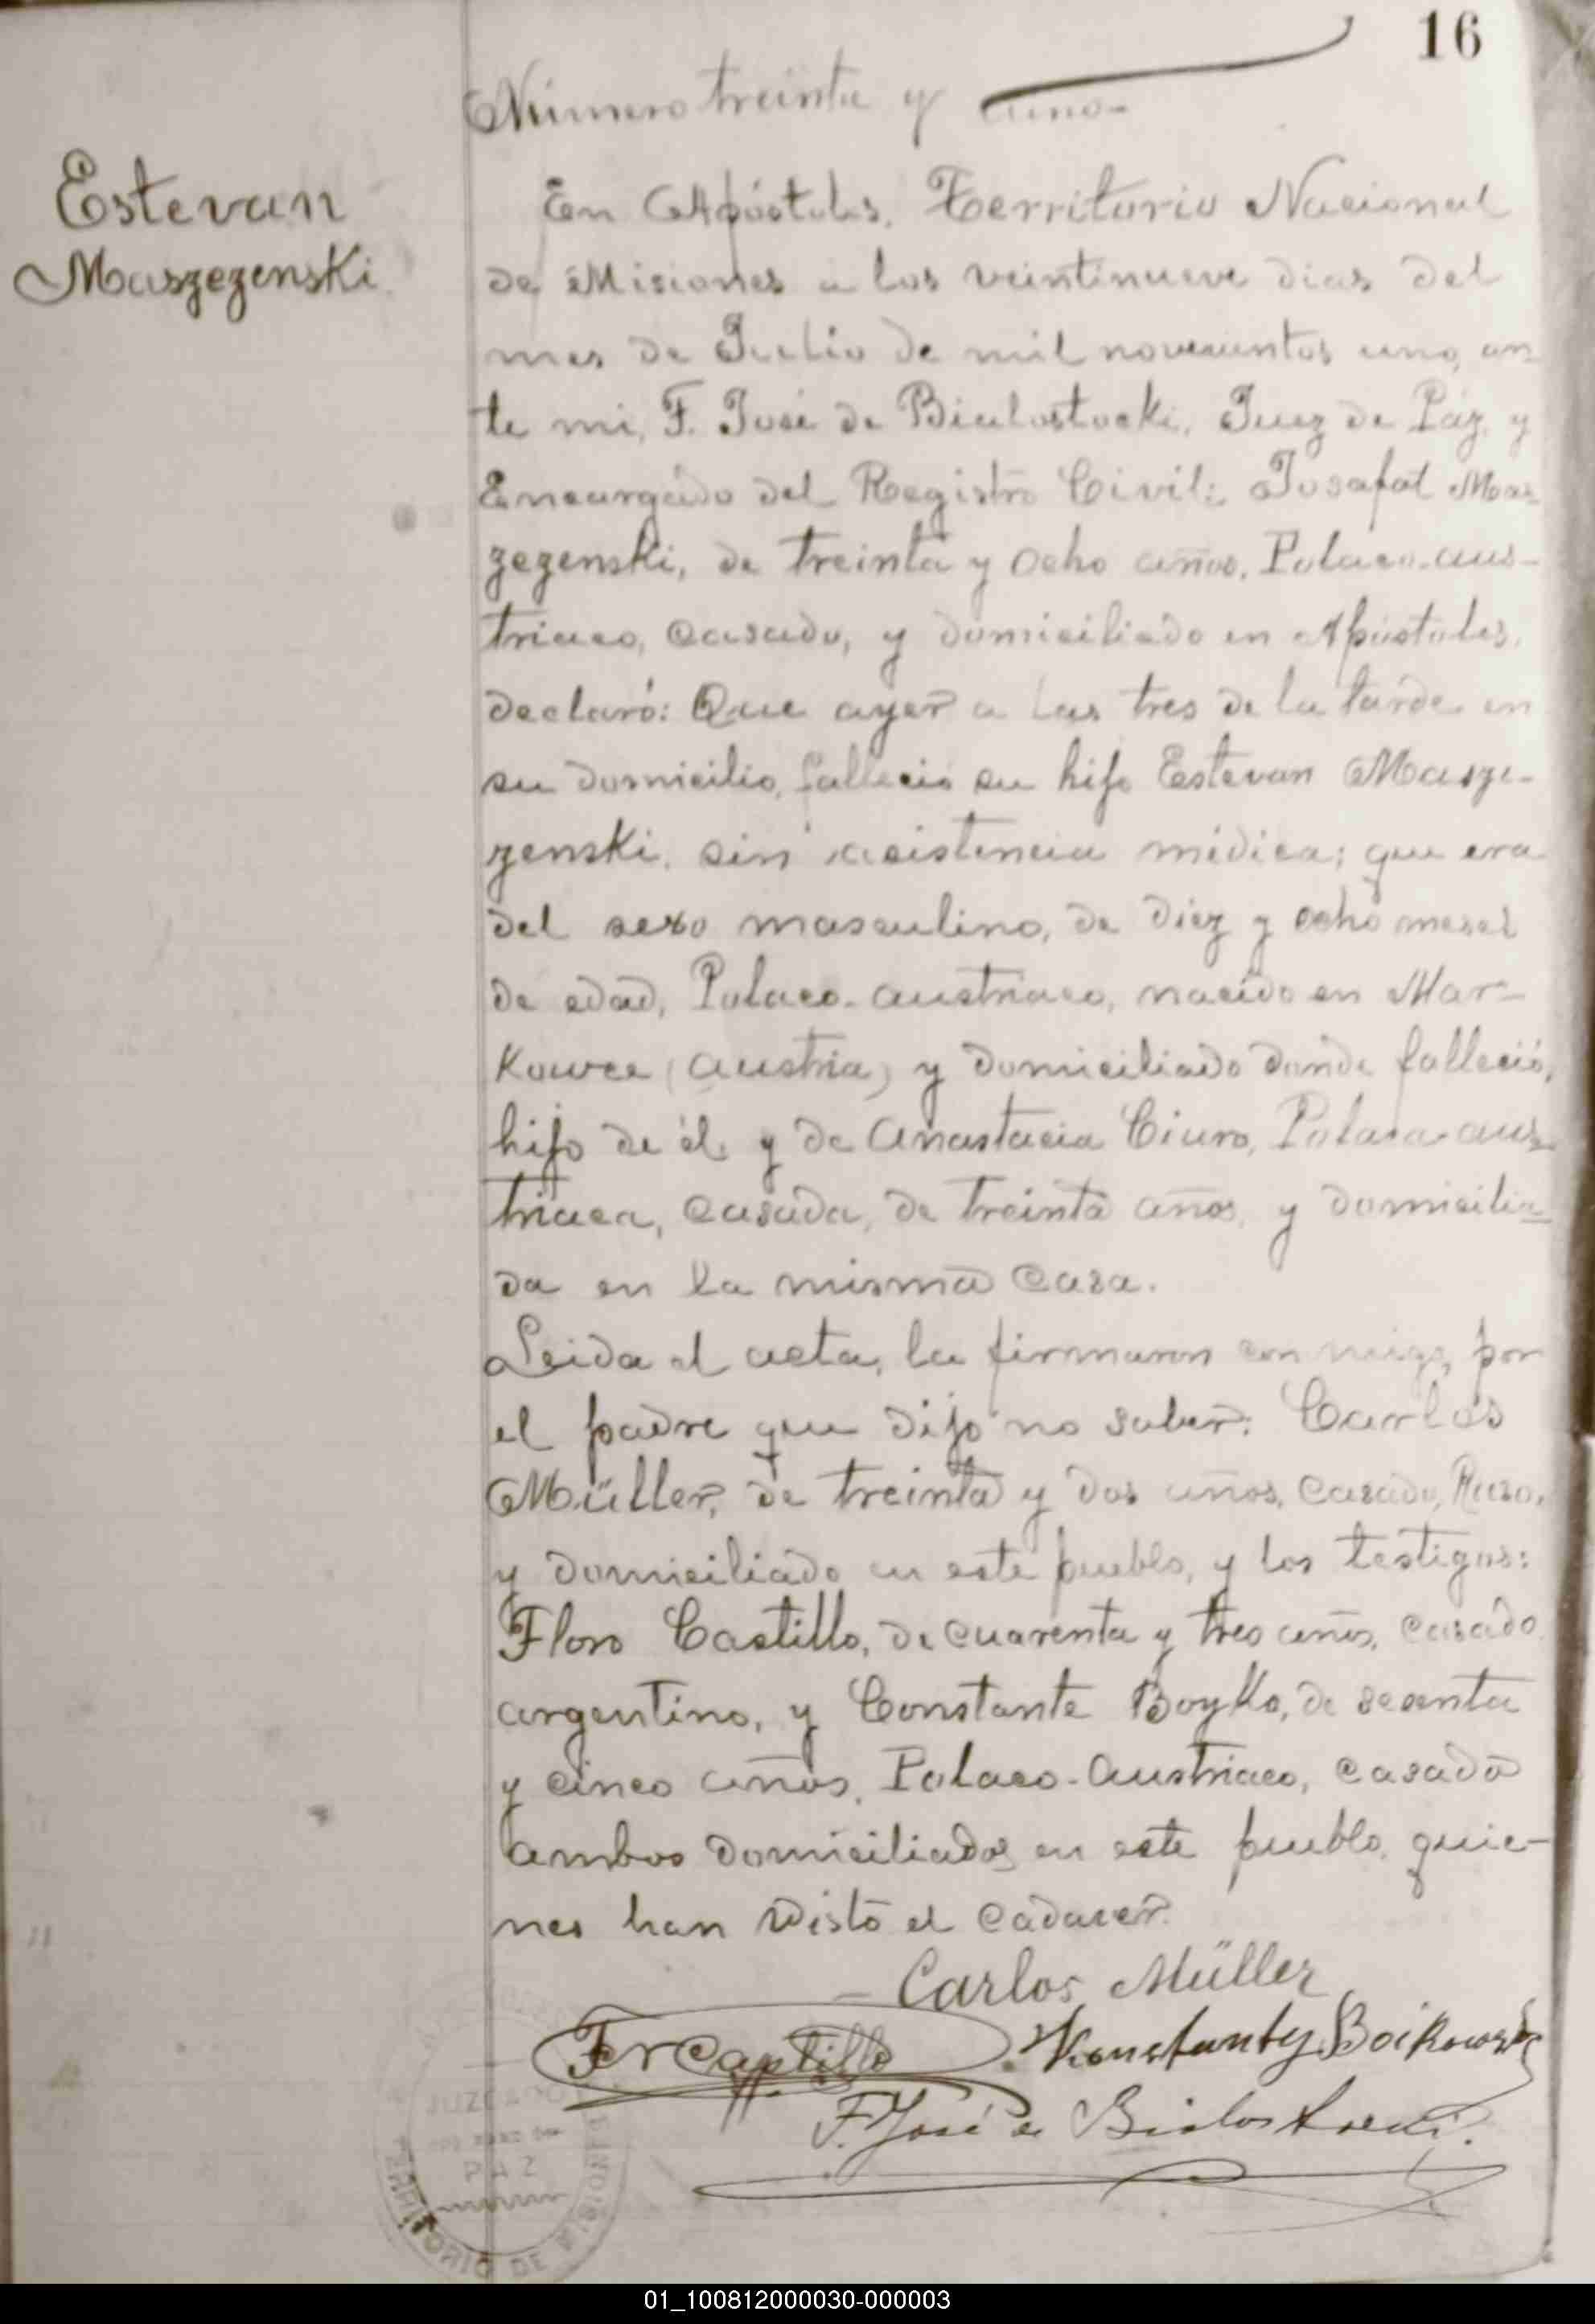 16
Número treinta y uno-
Estevan
Maszezenski
En Apóstoles, Territorio Nacional
de Misiones a los veintinueve dias del
mes de Julio de mil novecientos uno, an
te mi, F. José de Bialostocki, Juez de Páz, y
Encargado del Registro Civil: Josafat Mas
zezenski, de treinta y ocho años, Polaco-aus-
triaco, casado, y domiciliado en Apóstoles,
declaró: Que ayer a las tres de la tarde en
su domicilio, falleció su hijo Estevan Masze-
zenski, sin asistencia médica; que era
del sexo masculino, de diez y ocho meses
de edad, Polaco-austriaco, nacido en Mar-
kowce (Austria) y domiciliado donde falleció,
hijo de él y de Anastacia Ciuro, Polaca-aus-
triaca, casada, de treinta años, y domicilia-
da en la misma casa.
Leida el acta, la firmaron conmigo, por
el padre que dijo no saber: Carlos
Müller, de treinta y dos años, casado, Ruso,
y domiciliado en este pueblo, y los testigos:
Floro Castillo, de cuarenta y tres años, casado
argentino, y Constante Boyko, de sesenta
y cinco años, Polaco-Austriaco, casado
ambos domiciliados en este pueblo, quie-
nes han visto el cadaver.
Carlos Müller
Fr Castillo Konstanty Boikowski
F. José de Bialostocki.
JUZGADO
DE
PAZ
TERRITORIO DE MISIONES
01_100812000030-000003